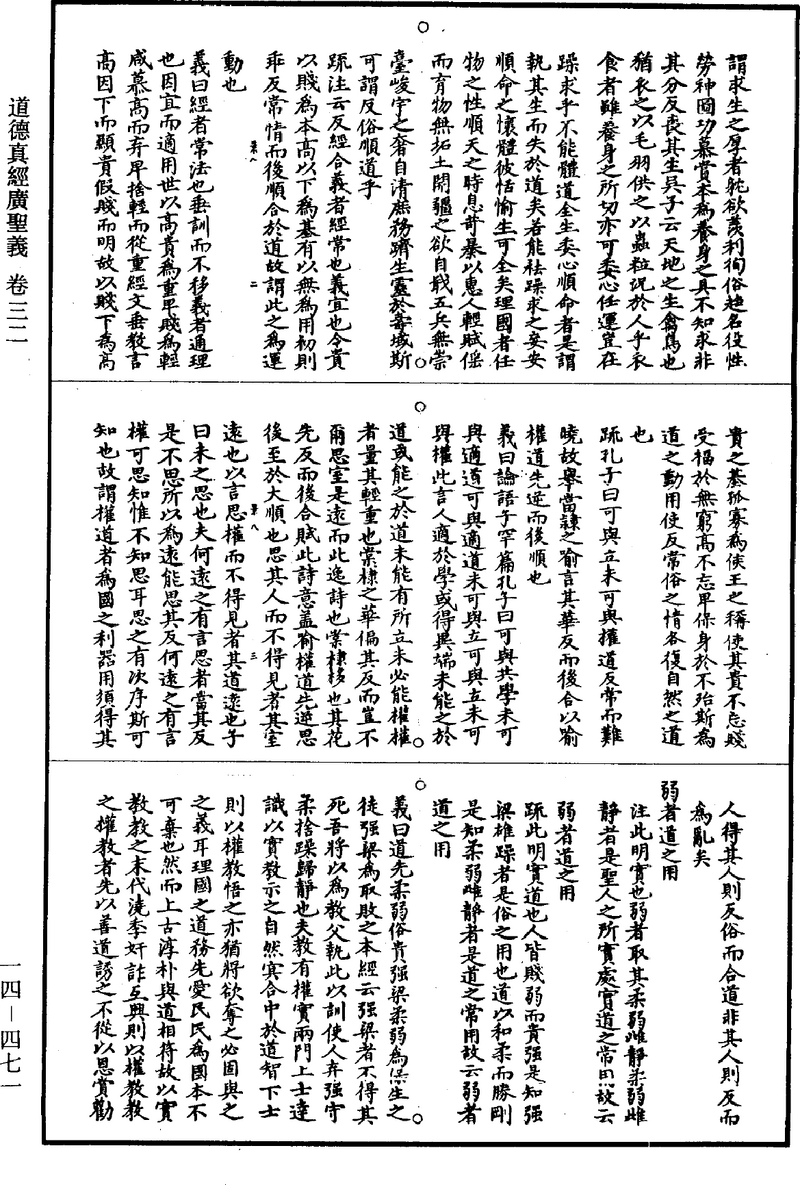 道德真經廣聖義　卷三二
一四－四七一
謂求生之厚者耽欲羨利徇俗趍名役性
勞神圖功慕賞本為養身之具不知求非
其分反喪其生吳子云天地之生禽鳥也
猶衣之以毛羽供之以蟲粒況於人乎衣
食者雖養身之所切亦可委心任運豈在
躁求乎不能體道全生委心順命者是謂
執其生而失於道矣若能袪躁求之妄安
順命之懷體彼恬愉生可全矣理國者任
物之性順天之時息苛暴以惠人輕賦徭
而育物無拓土開疆之欲自戢五兵無崇
臺峻宇之奢自清庶務躋生靈於壽域斯
可謂反俗順道乎
疏注云反經合義者經常也義宜也令貴
以賤為本高以下為基有以無為用初則
乖反常情而後順合於道故謂此之為運
動也
義曰經者常法也垂訓而不移義者通理
也因宜而適用世以高貴為重卑賤為輕
咸慕高而弃卑捨輕而從重經文垂教言
高因下而顯貴假賤而明故以賤下為高
貴之基孤寡為侯王之稱使其貴不忘賤
受福於無窮高不忘卑保身於不殆斯為
道之動用使反常俗之情各復自然之道
也
疏孔子曰可與立未可與權道反常而難
曉故舉當棣之喻言其華反而後合以喻
權道先逆而後順也
義曰論語子罕篇孔子曰可與共學未可
與適道可與適道未可與立可與立未可
與權此言人適於學或得異端未能之於
道或能之於道未能有所立未必能權權
者量其輕重也棠棣之華偏其反而豈不
爾思室是遠而此逸詩也棠棣栘也其花
先反而後合賦此詩意盖喻權道先逆思
後至於大順也思其人而不得見者其室
遠也以言思權而不得見者其道遠也子
曰未之思也夫何遠之有言思者當其反
是不思所以為遠能思其反何遠之有言
權可思知惟不知思耳思之有次序斯可
知也故謂權道者為國之利器用須得其
人得其人則反俗而合道非其人則反而
為亂矣
弱者道之用
注此明實也弱者取其柔弱雌靜柔弱雌
靜者是聖人之所實處實道之常用故云
弱者道之用
疏此明實道也人皆賤弱而貴强是知强
梁雄躁者是俗之用也道以和柔而勝剛
是知柔弱雌靜者是道之常用故云弱者
道之用
義曰道先柔弱俗貴强梁柔弱為保生之
徒强梁為取敗之本經云强梁者不得其
死吾將以為教父執此以訓使人弃强守
柔捨躁歸靜也夫教有權實兩門上士達
識以實教示之自然冥合中於道智下士
則以權教悟之亦猶將欲奪之必固與之
之義耳理國之道務先愛民民為國本不
可棄也然而上古淳朴與道相符故以實
教教之末代澆季奸詐互興則以權教教
之權教者先以善道誘之不從以恩賞勸